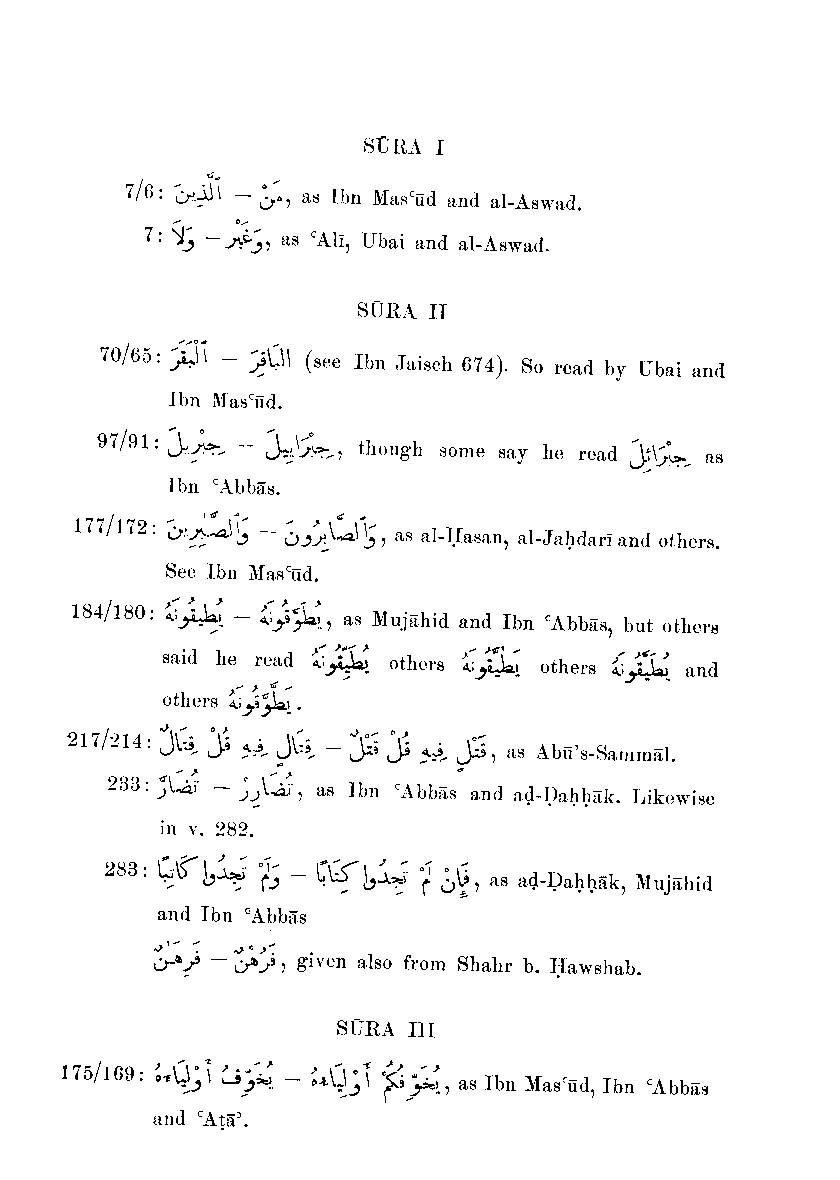 SŪRA I
7/6: ٱلَّذِينَ — مَنْ, as Ibn Masʿūd and al-Aswad.
7: وَلَا — وَغَيْرَ, as ʿAlī, Ubai and al-Aswad.
SŪRA II
70/65: ٱلْبَقَرَ — البَاقِرَ (see Ibn Jaisch 674). So read by Ubai and
Ibn Masʿūd.
97/91: جِبْرِيلَ -- جِبْرَايِيلَ, though some say he read جِبْرَائِلَ as
Ibn ʿAbbās.
177/172: وَٱلصَّٰبِرِينَ -- وَٱلصَّابِرُونَ, as al-Ḥasan, al-Jaḥdarī and others.
See Ibn Masʿūd.
184/180: يُطِيقُونَهُ — يُطَوَّقُونَهُ, as Mujāhid and Ibn ʿAbbās, but others
said he read يُطَيِّقُونَهُ others يَطَّيَّقُونَهُ others يُطَيَّقُونَهُ and
others يَطَّوَّقُونَهُ.
217/214: قِتَالٍ فِيهِ قُلْ قِتَالٌ — قَتْلٍ فِيهِ قُلْ قَتْلٌ, as Abū's-Sammāl.
233: تُضَارَّ — تُضَارِرْ, as Ibn ʿAbbās and aḍ-Ḍaḥḥāk. Likewise
in v. 282.
283: وَلَمْ تَجِدُوا كَاتِبًا — فَإِنْ لَمْ تَجِدُوا كِتَابًا, as aḍ-Ḍaḥḥāk, Mujāhid
and Ibn ʿAbbās
فَرِهَٰنٌ — فَرُهْنٌ, given also from Shahr b. Ḥawshab.
SŪRA III
175/169: يُخَوِّفُ أَوْلِيَاءَهُ — يُخَوِّفُكُمْ أَوْلِيَاءَهُ, as Ibn Masʿūd, Ibn ʿAbbās
and ʿAṭāʾ.